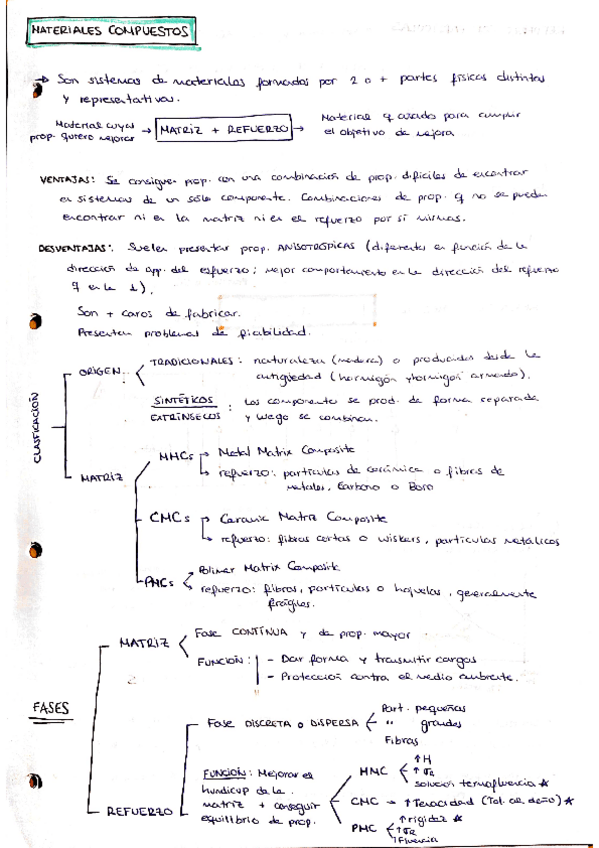 MATERIALES COMPUESTOS
Son sistemas de materiales formados por 2 o + partes físicas distintas
y representativas.
Material cuyas
prop. quiero mejorar → MATRIZ + REFUERZO →
Material q usado para cumplir
el objetivo de mejora
VENTAJAS: Se consiguen prop. con una combinación de prop. difíciles de encontrar
en sistemas de un solo componente. Combinaciones de prop. q no se pueden
encontrar ni en la matriz ni en el refuerzo por sí mismas.
DESVENTAJAS: Suelen presentar prop. ANISOTRÓPICAS (diferentes en función de la
dirección de app. del esfuerzo; mejor comportamiento en la dirección del refuerzo
q en la ⊥).
Son + caros de fabricar.
Presentan problemas de fiabilidad.
CLASIFICACIÓN
ORIGEN:
TRADICIONALES: naturaleza (madera) o producidos desde la
antigüedad (hormigón y hormigón armado).
SINTÉTICOS
EXTRÍNSECOS : Los componente se prod. de forma separada
y luego se combinan.
MATRIZ
MMCs → Metal Matrix Composite
→ refuerzo: partículas de cerámica o fibras de
metales, Carbono o Boro
CMCs → Ceramic Matriz Composite
→ refuerzo: fibras cortas o wiskers, partículas metálicos
PMCs
Polimer Matrix Composite
refuerzo: fibras, partículas o hojuelas, generalmente
frágiles.
FASES
MATRIZ
Fase CONTÍNUA y de prop. mayor
FUNCIÓN: - Dar forma y transmitir cargas
- Protección contra el medio ambiente.
REFUERZO
Fase DISCRETA o DISPERSA
Part. pequeñas
" grandes
Fibras
FUNCIÓN: Mejorar el
handicap de la
matriz + conseguir
equilibrio de prop.
MMC
↑H
↑σR
termofluencia *
CMC → ↑Tenacidad
PMC
↑rigidez *
↑σR
↑Fluencia